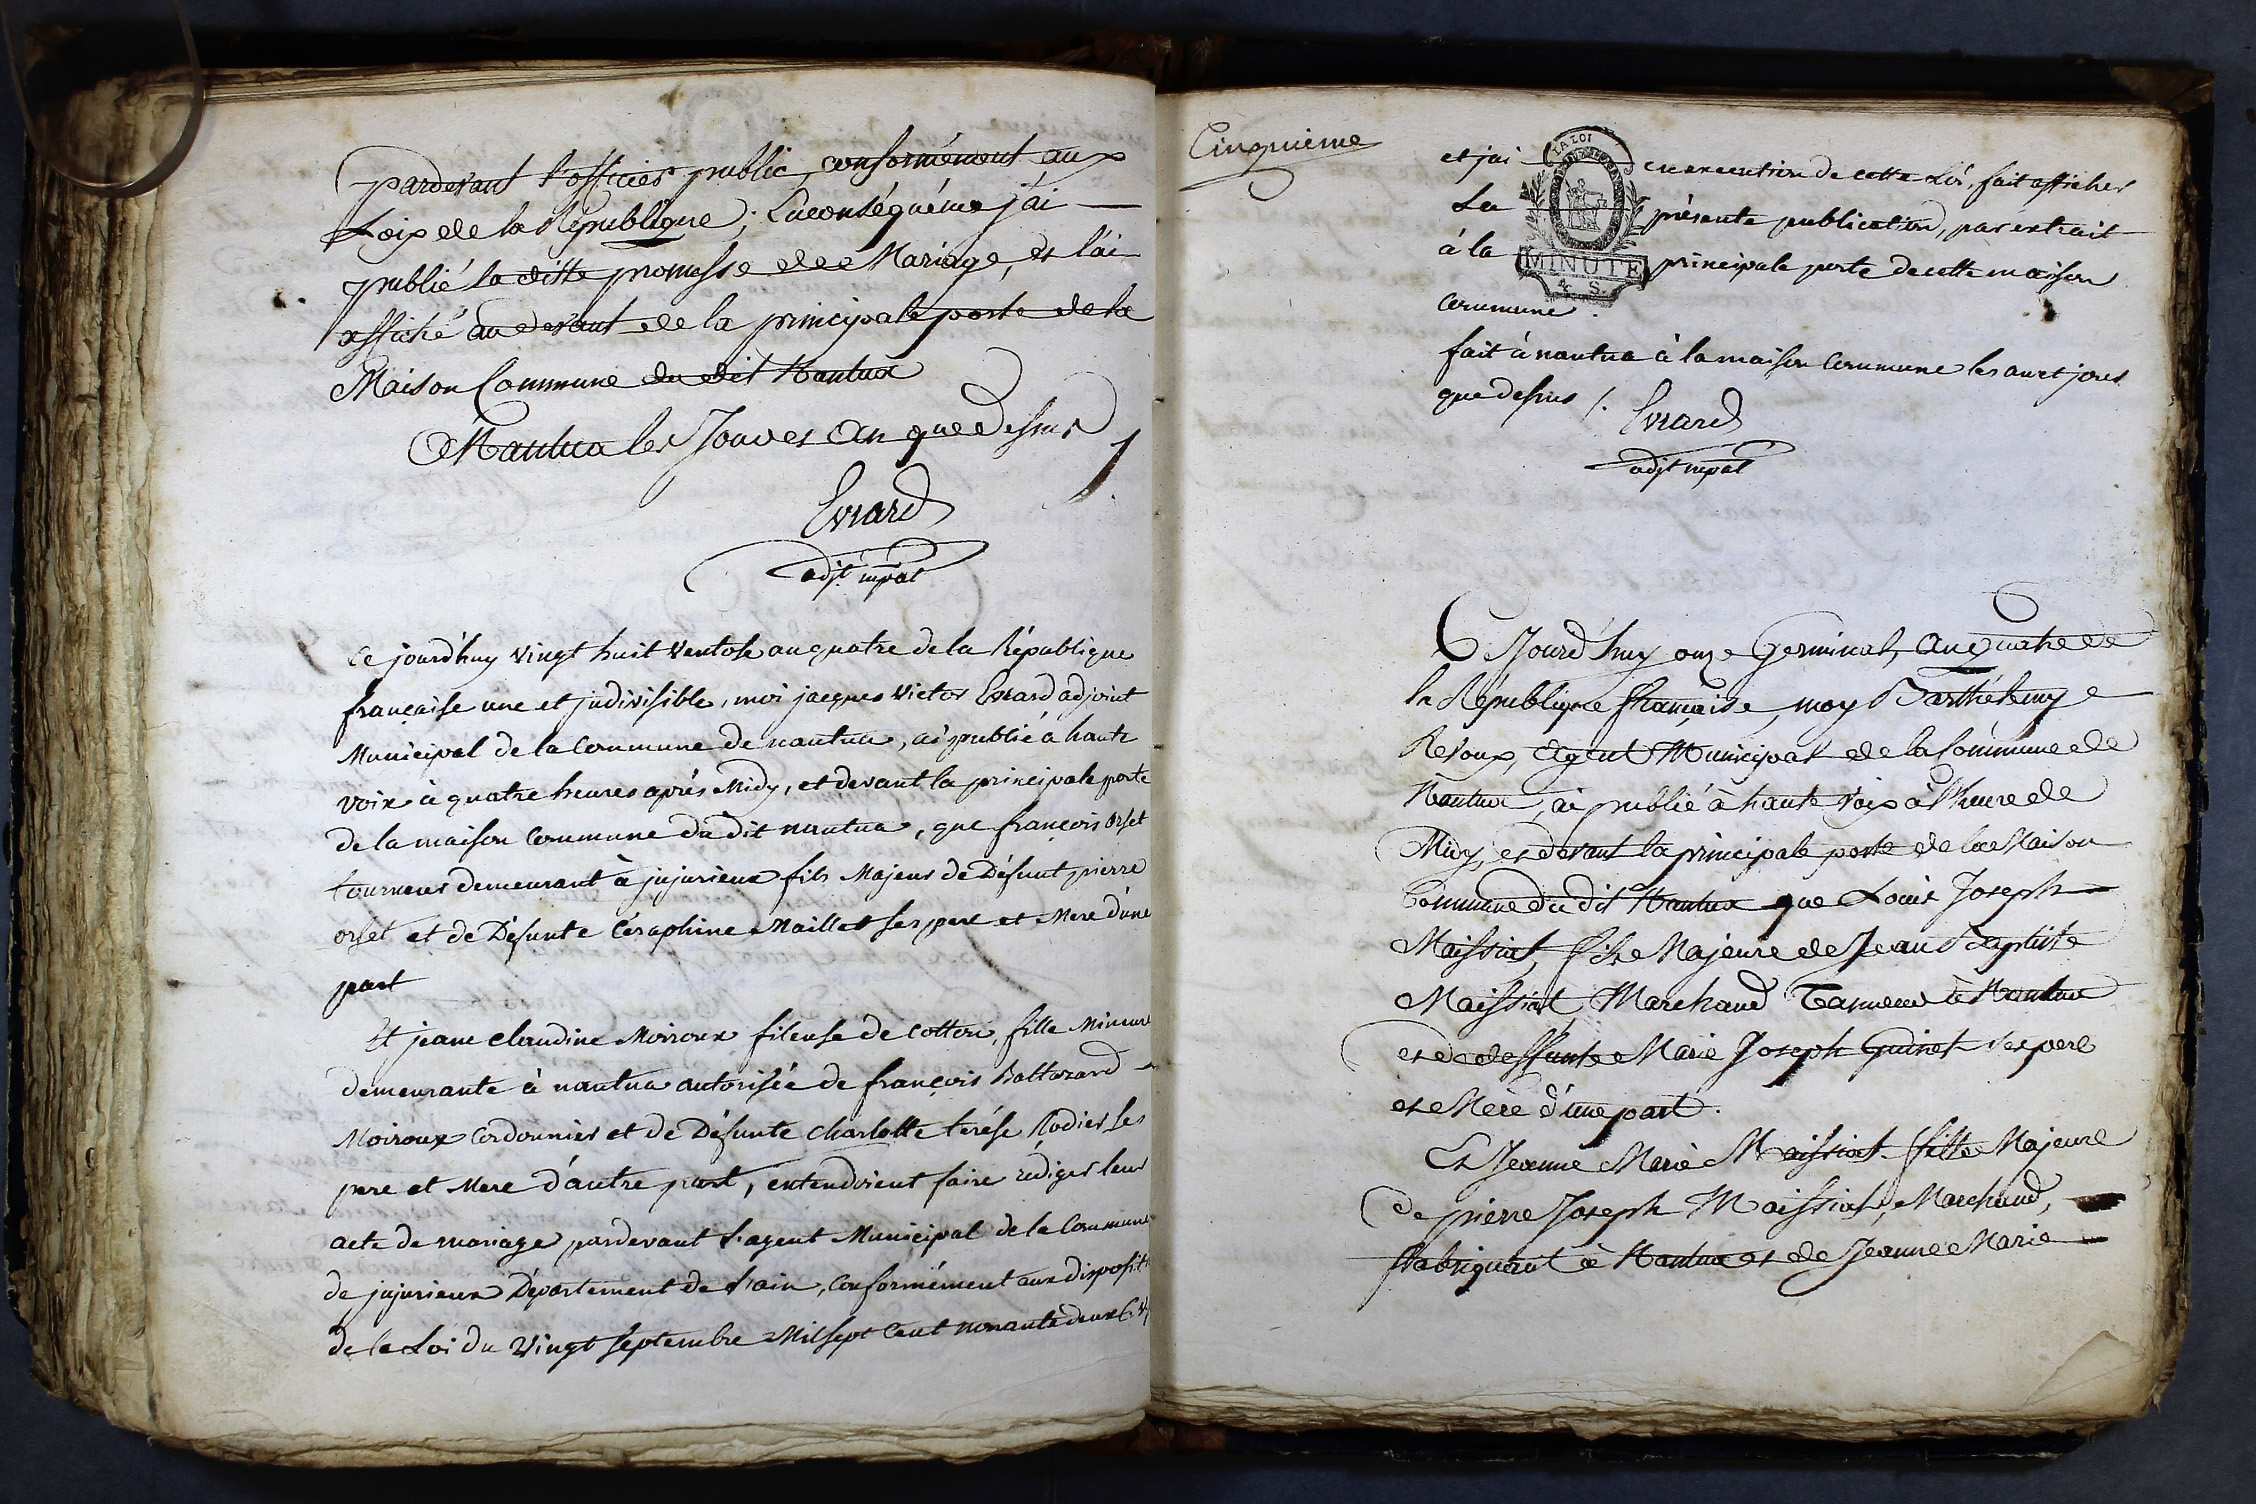 pardevant l'officier public, conformément aux
Loix de la République; Enconséquence j'ai
publié la ditte promesse de Mariage, et l'ai
affiché au devant de la principale porte de la
Maison Commune du dit Nantua
A Nantua les Jour et An que Dessus
Evrard
adjt mpal
Ce jourd'huy vingt huit Ventose an quatre de la République
française une et indivisible, moi jacques Victor Evrard adjoint
Municipal de la Commune de nantua, ai publié à haute
voix à quatre heures aprés Midy, et devant la principale porte
de la maison Commune du dit nantua, que françois orset
tourneur demeurant à jujurieux fils Majeur de Défunt pierre
orset et de Défunte Céraphine Maillet ses pere et Mere d'une
part
Et jeane claudine Moiroux fileuse de cotton, fille Mineure
demeurante à nantua autorisée de françois Baltazard
Moiroux Cordonnier et de Défunte charlotte terése Rodier ses
pere et Mere d'autre part, entendoient faire rédiger leur
acte de mariage pardevant l'agent Municipal de la Commune
de jujurieux Département de l'ain, conformément aux disposit
de la Loi du vingt septembre Mil sept Cent nonante deux
Cinquième
LA LOI
et jai en execution de cette Loi, fait afficher
La présente publication, par extrait
à la principale porte de cette maison
MINUTE
commune.
fait à nantua à la maison Commune les an et jour
que dessus /.
Evrard
adjt mpal
Ce Jourd'huy onze Germinal, an quatre de
la République française, moy Barthélemy
Revoux, agent Municipal de la Commune de
Nantua, ai publié à haute voix à l'heure de
Midy, et devant la principale porte de la Maison
Commune du dit Nantua que Louis Joseph
Maissiat, fils Majeure de Jean Baptiste
Maissiat, Marchand Tanneur à Nantua
et de deffunte Marie Joseph Guinet ses pere
et Mère d'une part.
Et Jeanne Marie Maissiat fille Majeure
de pierre Joseph Maissiat, Marchand,
fabriquant à Nantua et de Jeanne Marie